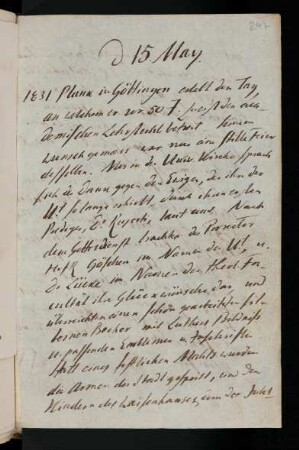 d 15 May.
1831 Plank in Göttingen erlebt den Tag,
an welchem er vor 50 J. zuerst den aca-
demischen Lehrstuhl betrat. Seinem
Wunsch gemäss war nur eine stille Feier
desselben. Nur in d. Univ. Kirche sprach
sich d. Dank gegen den Ewigen, der ihn der
Ut so lange erhielt, durch den ersten
Prediger, Dr Ruperti, laut aus. Nach
dem Gottesdienst brachten der Prorector
Hofr. Göschen im Namen der Ut, u.
Dr Lücke im Namen der theol. Fa-
cultät die Glückwünsche dar, und
überreichten einen schön gearbeiteten sil-
bernen Becher mit Luthers Bildniss
u. passenden Emblemen u. Inschriften.
Statt eines festlichen Mahls wurden
die Armen der Stadt gespeist, und den
Kindern des Waisenhauses, von der Jubel